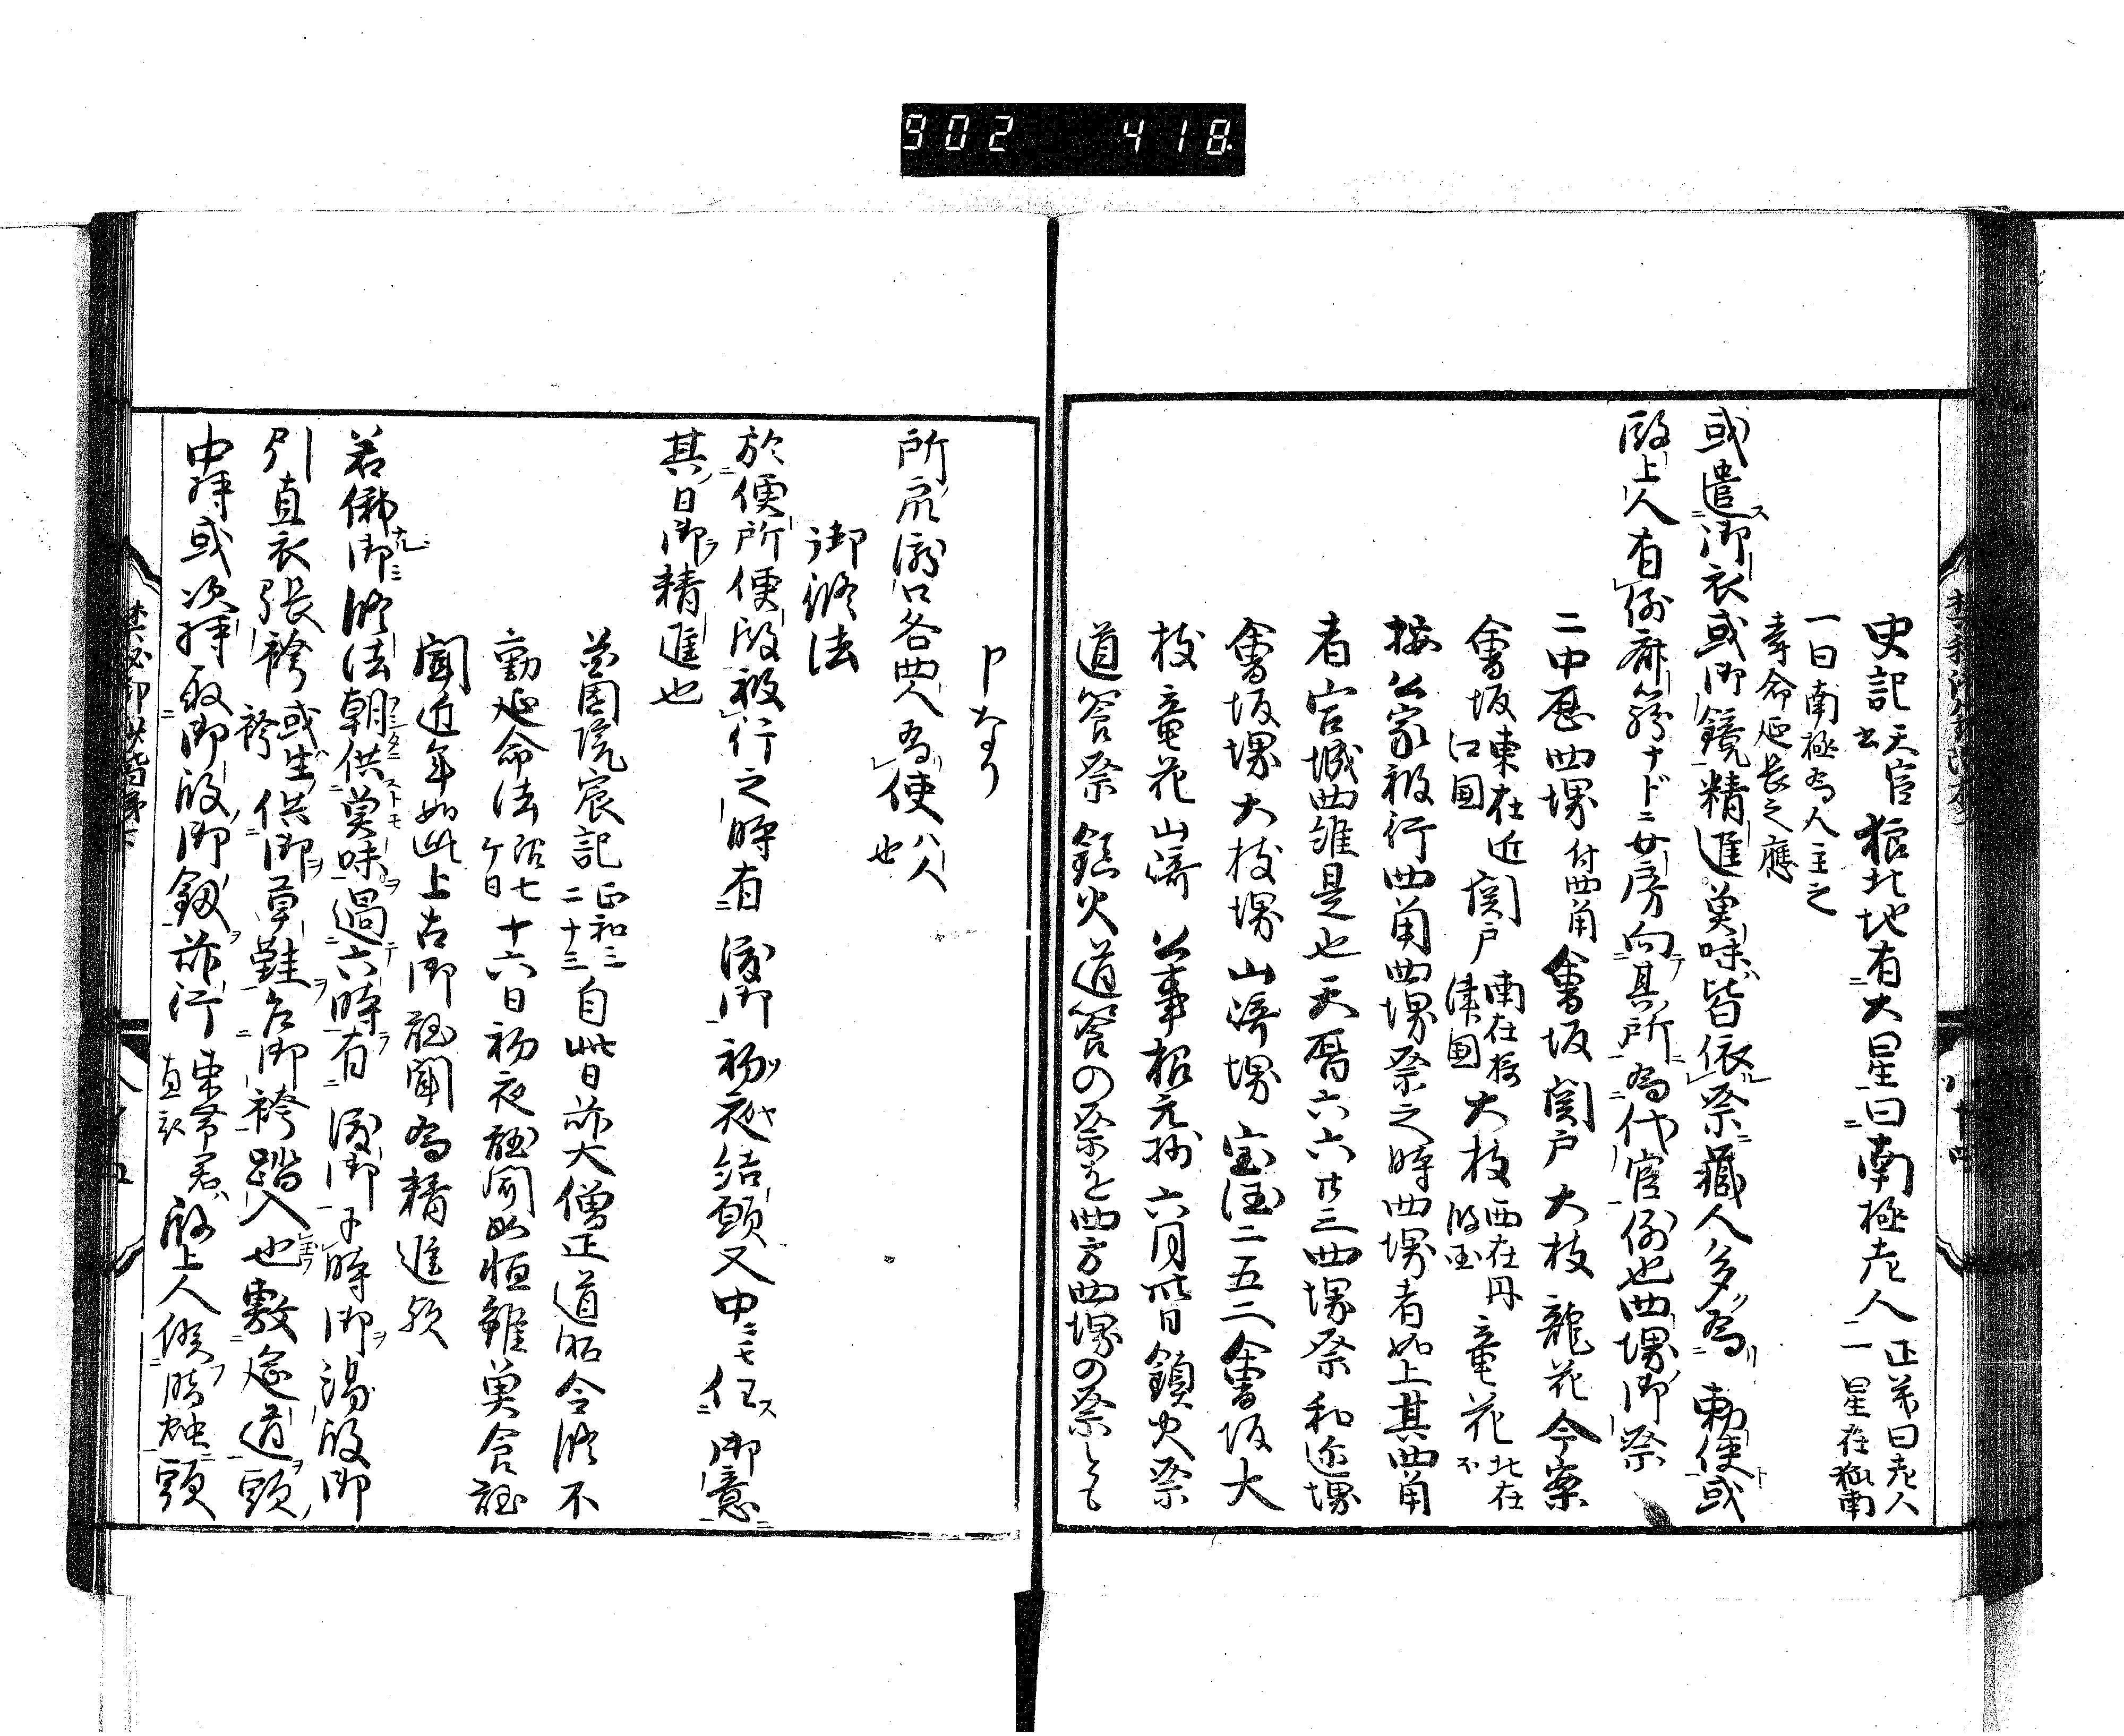 902 418
史記天官書 狼比地有大星曰南極老人 正義曰老人一星在弧南
一曰南極為人主之
寿命延長之應
或遣御衣或御鏡精進魚味皆依祭蔵人多為勅使或
殿上人有例齋籠ナドニ女房向其所為代官例也四堺御祭
二中歴四堺 付四角 會坂 関戸 大枝 龍花 今案
會坂 東在近江国 関戸 南在摂津国 大枝 西在丹波国 竜花 北在
按公家被行四角四堺祭之時四堺者如上其四角
者宮城四維是也天暦六六廿三四堺祭和迩堺
會坂堺大枝堺山﨑堺宝徳二五二會坂大
枝竜花山﨑 公事根元抄六月晦日鎮火祭
道饗祭 鎮火道饗の祭を四方四堺の祭とも
申なり
所衆瀧口各四人為使 八人也
御修法
於便所便殿被行之時有渡御初夜結願又中ニモ任御意
其日御精進也
花園院宸記 正和二二十三 自此日前大僧正道昭令修不
動延命法 限七ケ日 十六日初夜聴聞如恒雖魚食聴
聞近年如此上古御聴聞為精進歟
若佛御修法朝供魚味過六時有渡御子時御湯殿御
引直衣張袴或生袴供御草鞋令御袴踏入也敷筵道頭
中将或次将取御殿御釼前行 束帯若直衣 殿上人候脂燭頭